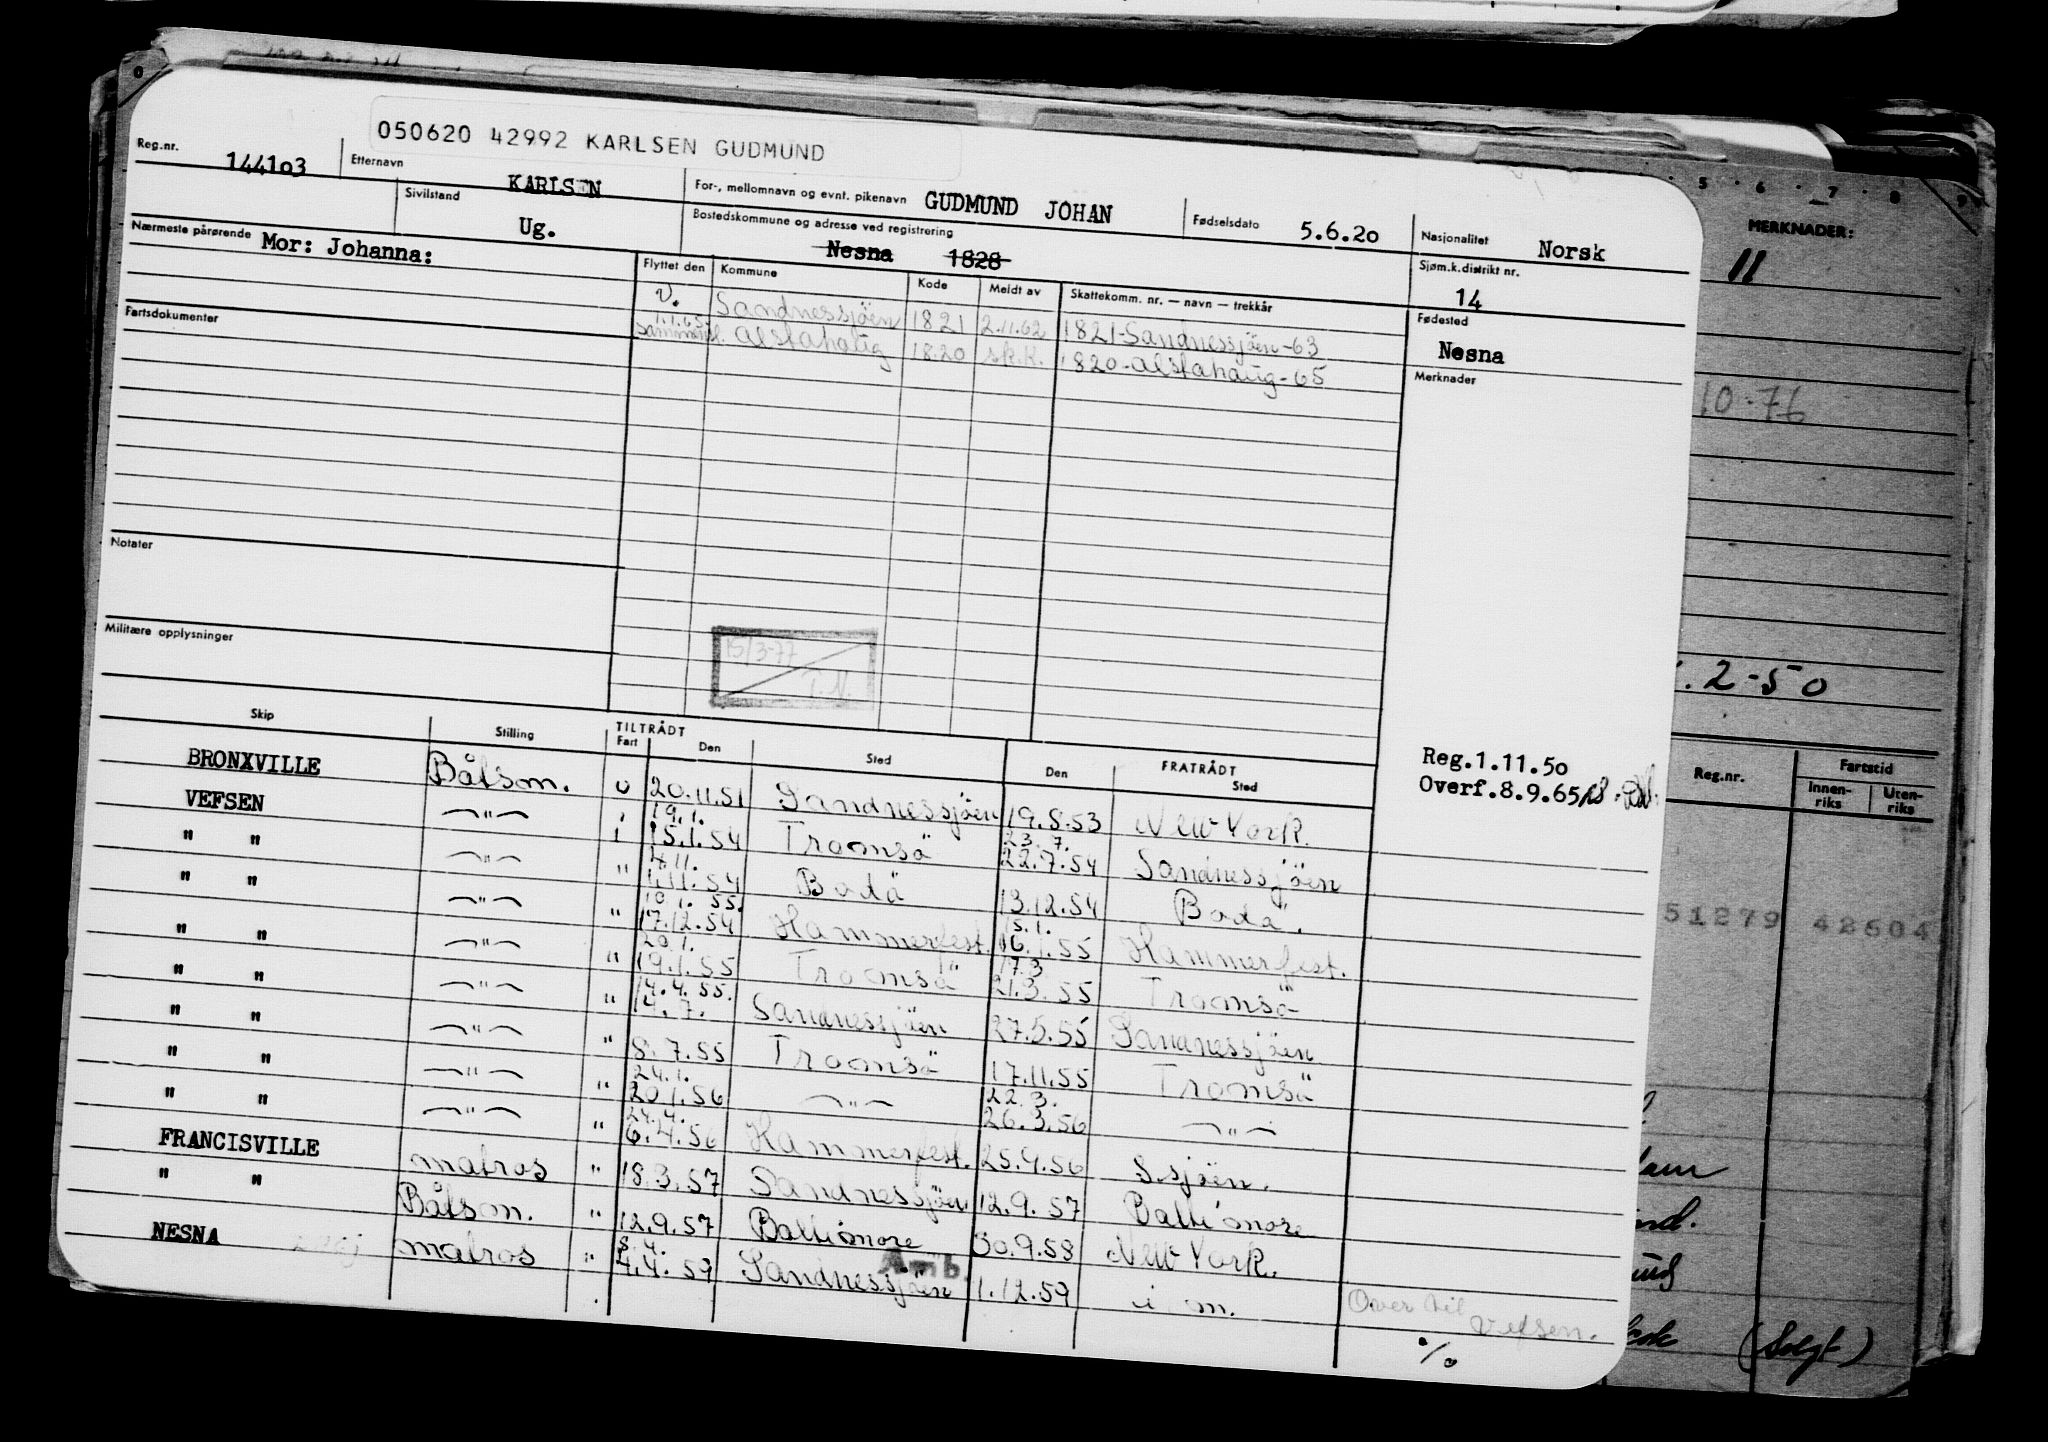 050620 42992 KARLSEN GUDMUND
Reg.nr. 1441o3 Etternavn KARLSEN For-, mellomnavn og evnt. pikenavn GUDMUND JOHAN Fødselsdato 5.6.2o Nasjonalitet Norsk
Sivilstand Ug. Bostedskommune og adresse ved registrering Nesna 1828 Sjøm.k.distrikt nr. 14
Nærmeste pårørende Mor: Johanna:
Flyttet den Kommune Kode Meldt av Skattekomm. nr. — navn — trekkår Fødested
v. Sandnessjöen 1821 2.11.62 1821-Sandnessjöen-63 Nesna
1.1.65 Alstahaug 1820 sk.k. 1820-Alstahaug-65
Fartsdokumenter
Merknader
Notater
Militære opplysninger
15/3-77
T.N.
Skip Stilling TILTRÅDT FRATRÅDT
Fart Den Sted Den Sted
Reg.1.11.5o
Overf.8.9.65
BRONXVILLE Båtsm. u 20.11.51 Sandnessjöen 19.8.53 New York.
19.1. 23.7.
VEFSEN —"— i 15.1.54 Tromsö 22.7.54 Sandnessjöen
4.11.
" " —"— " 1.11.54 Bodö 13.12.54 Bodö.
10.1.55. 15.1.
" " —"— " 17.12.54 Hammerfest. 16.1.55 Hammerfest.
20.1. 17.3
" " —"— " 19.1.55 Tromsö 21.3.55 Tromsö
14.4.55.
" " —"— " Sandnessjöen 27.5.55 Sandnessjöen
14.7.
" " —"— " 8.7.55 Tromsö 17.11.55 Tromsö
24.1. 22.3.
" " —"— " 20.1.56 —"— 26.3.56 —"—
24.4.
" " —"— " 6.4.56 Hammerfest. 25.9.56 S.sjöen.
FRANCISVILLE matros " 18.3.57 Sandnessjöen 12.9.57 Baltimore
" " Båtsm. " 12.9.57 Baltimore 30.9.58 New York.
Amb.
NESNA matros " 4.4.59 Sandnessjöen 1.12.59 i m. Over til Vefsen.
%
5 6 7 8 9
MERKNADER:
11
10.76
.2-50
Reg.nr. Fartstid
Innen-riks Uten-riks
51279 42604
(Solgt)